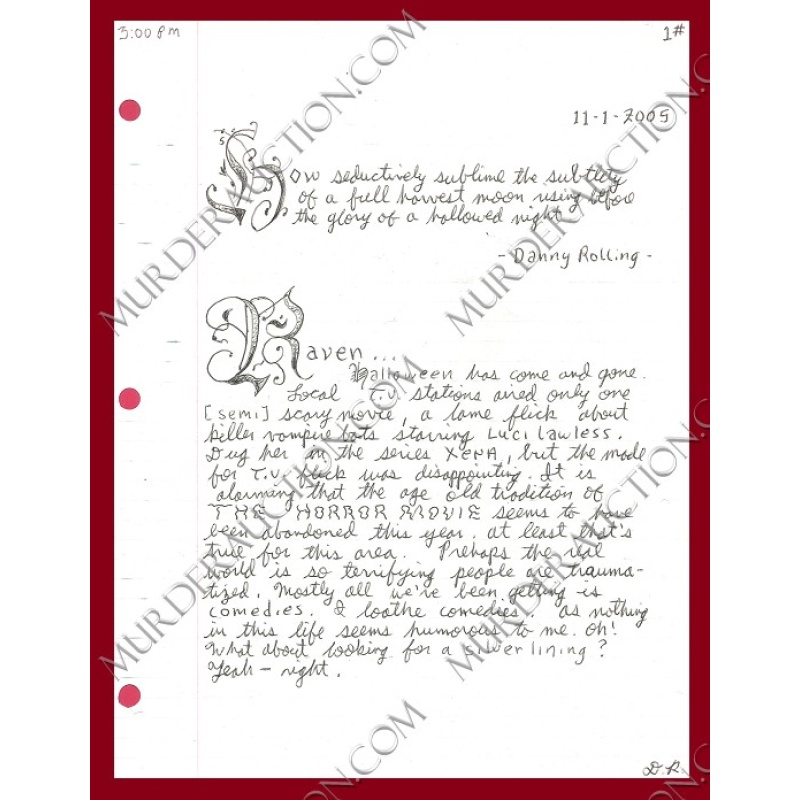 3:00 pm
1#
11-1-2005
How seductively sublime the subtlety
of a full harvest moon rising before
the glory of a hallowed night.
- Danny Rolling -
Raven...
Halloween has come and gone.
Local T.V. stations aired only one
[semi] scary movie, a lame flick about
killer vampire bats starring Luci Lawless.
Dug her in the series XENA, but the made
for T.V. flick was disappointing. It is
alarming that the age old tradition of
THE HORROR MOVIE seems to have
been abandoned this year. at least that's
true for this area. Prehaps the real
world is so terrifying people are trauma-
tized. Mostly all we've been getting is
comedies. I loathe comedies. as nothing
in this life seems humorous to me. Oh!
What about looking for a silver lining?
Yeah - right.
D.R.
MURDERAUCTION.COM